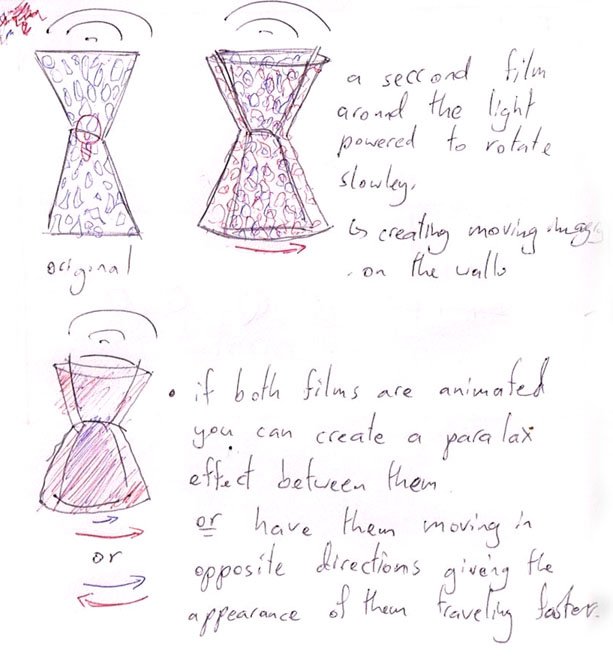 original
a seccond film
around the light
powered to rotate
slowley.
↳ creating moving images
on the walls
• if both films are animated
you can create a paralax
effect between them
or have them moving in
opposite directions giving the
appearance of them traveling faster.
or